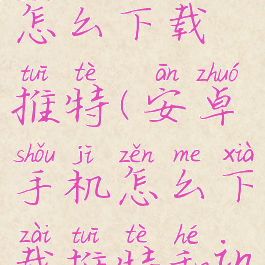 怎么下载
tuī tè ān zhuó
推特(安卓
shǒu jī zěn me xià
手机怎么下
zài tuī tè hé
载推特和